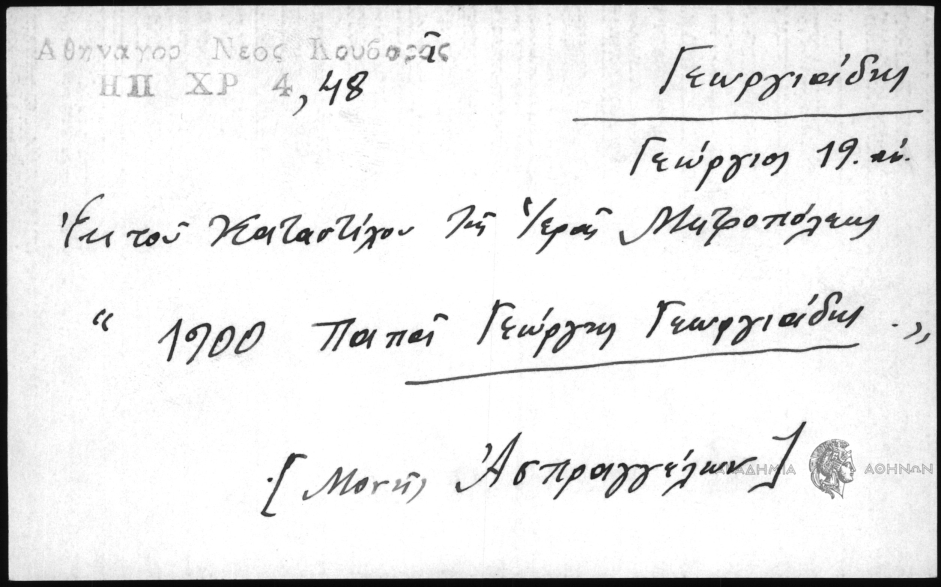 Αθηναγορ Νεος Κουβαρᾶς
ΗΠ ΧΡ 4, 48
Γεωργιάδης
Γεώργιος 19. αἰ.
Ἐκ τοῦ Καταστίχου τῆς Ἱερᾶς Μητροπόλεως
“ 1900 Παπᾶ Γεώργης Γεωργιάδης . „
.[Μονῆς Ἀσπραγγέλων]
ΑΚΑΔΗΜΙΑ ΑΘΗΝΩΝ